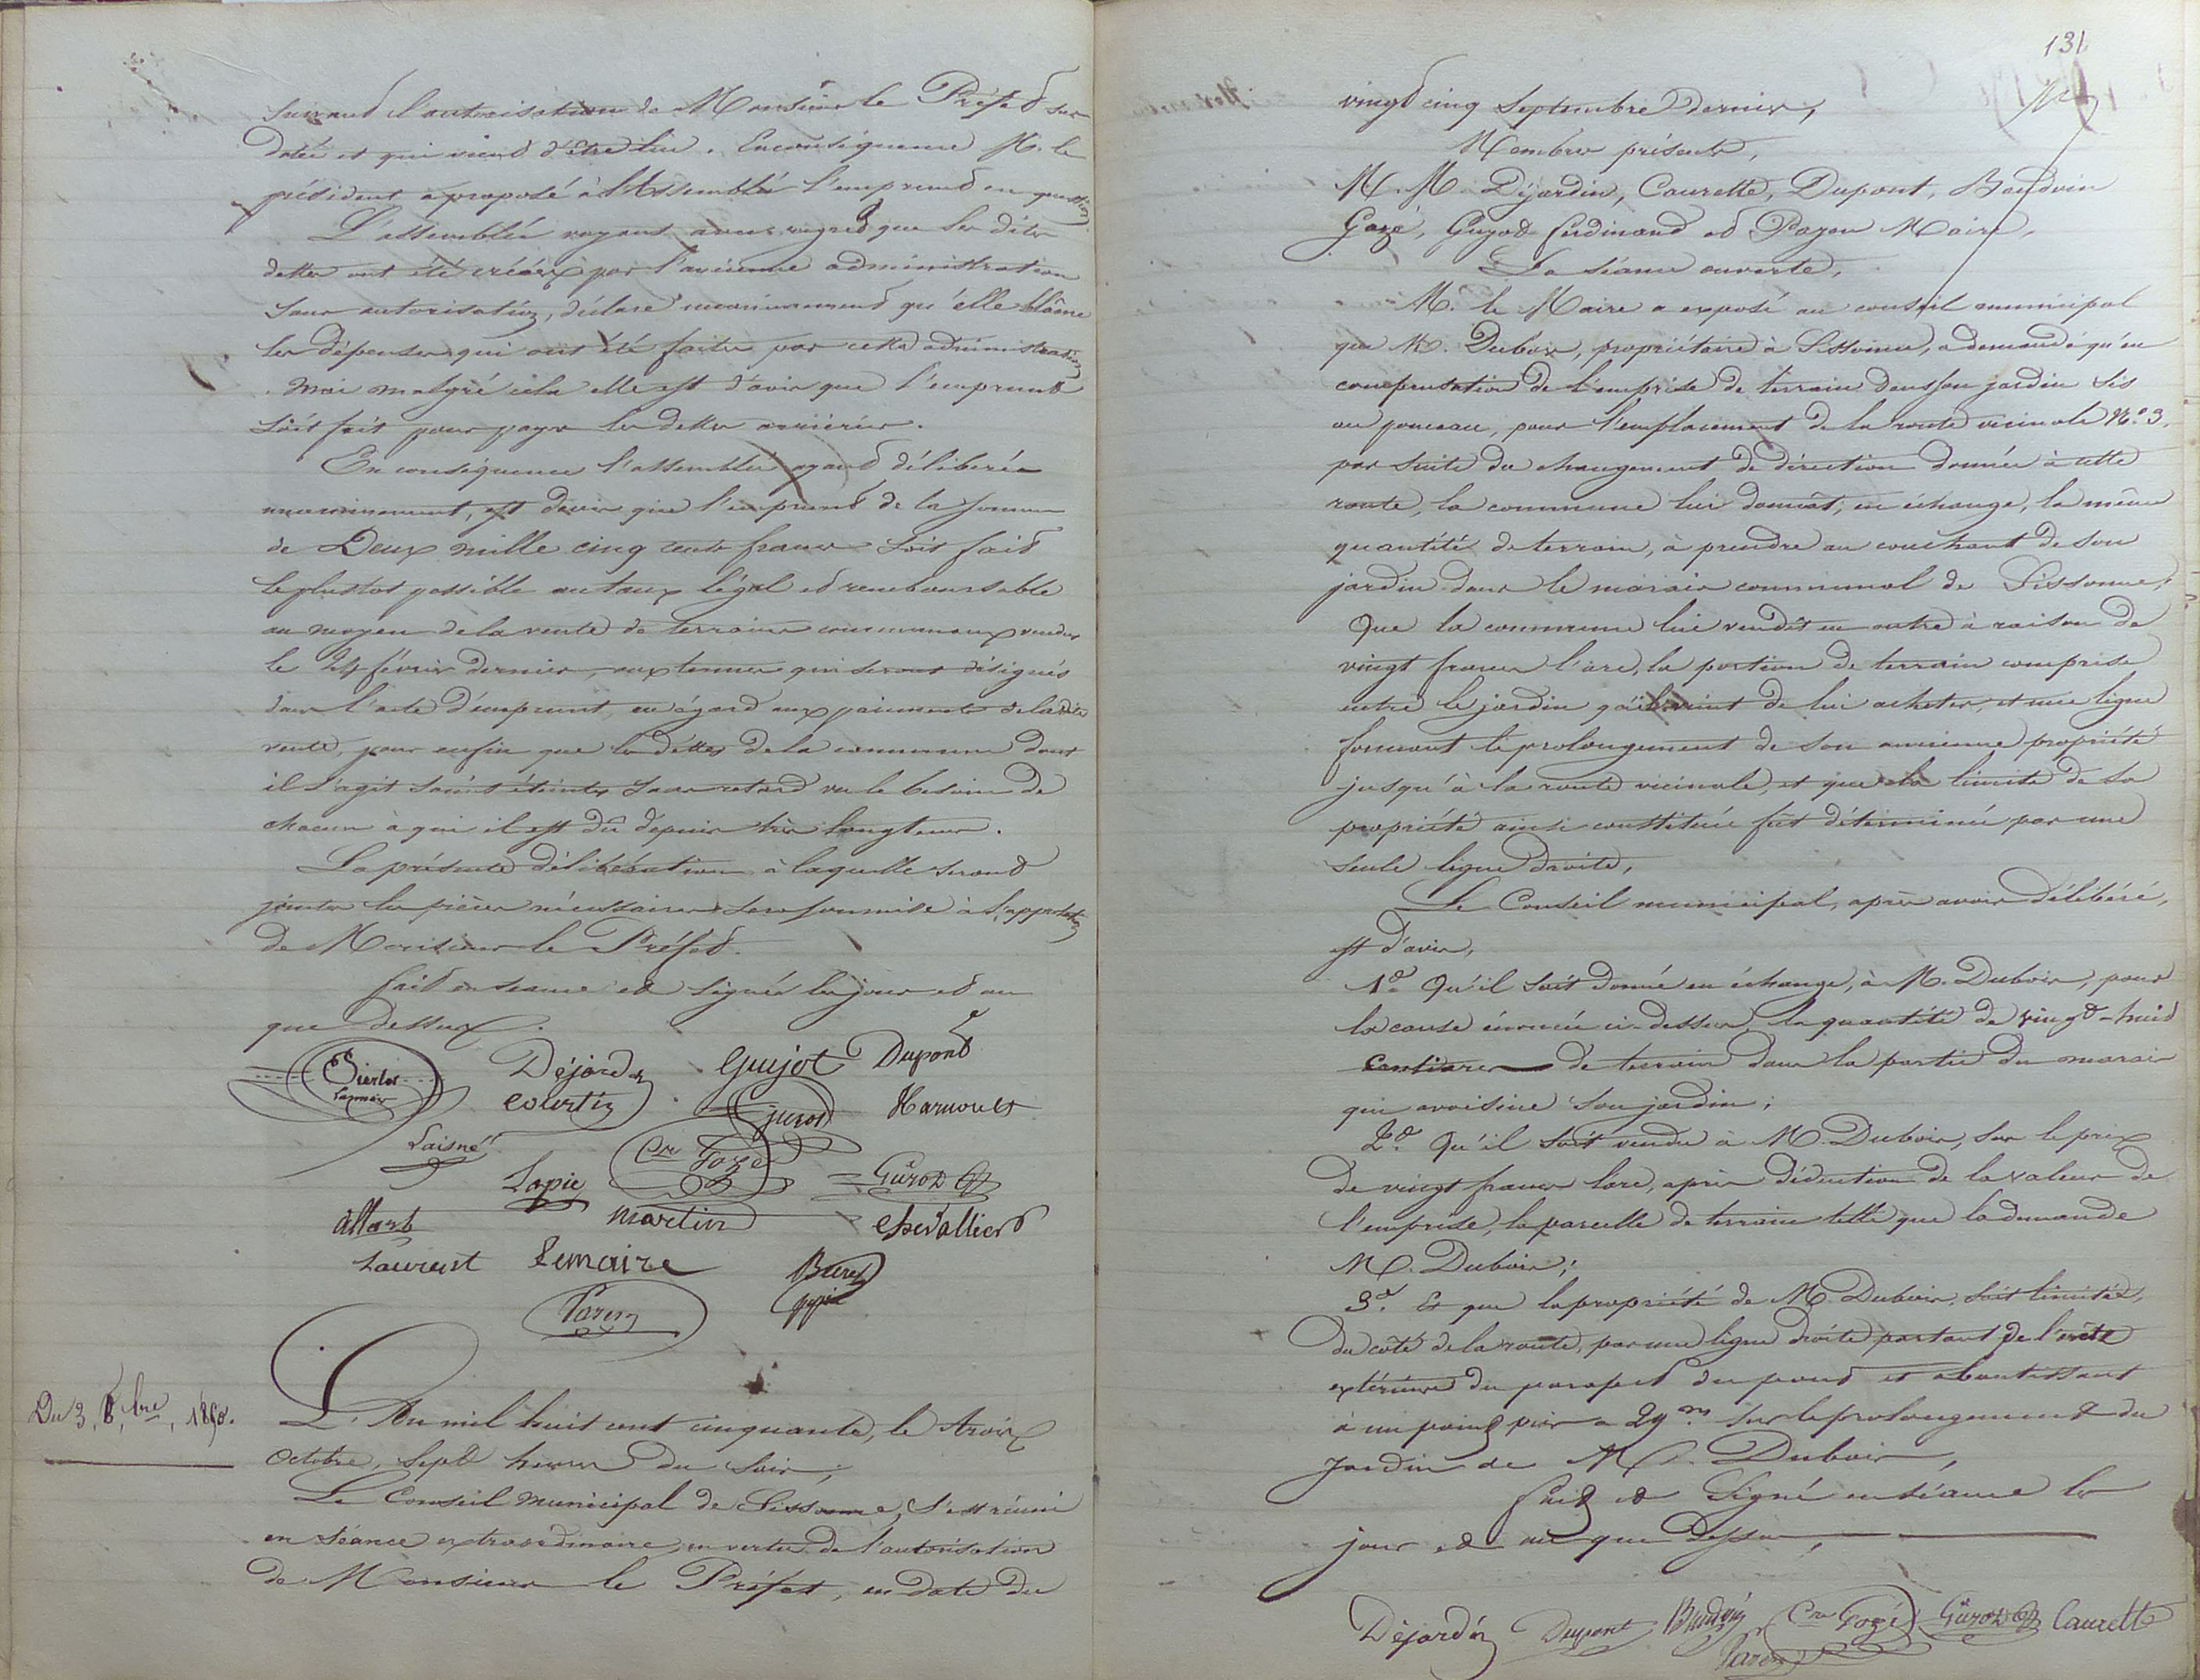 suivant l'autorisation de Monsieur le Préfet sus
datée et qui vient d'être lue. En conséquence M. le
président a proposé à l'Assemblée l'emprunt en question
L'assemblée voyant avec regret que les dites
dettes ont été créées par l'ancienne administration
sans autorisation, déclare unanimement qu'elle blâme
les dépenses qui ont été faites par cette administration
mais malgré cela elle est d'avis que l'emprunt
soit fait pour payer les dettes arriérées.
En conséquence l'assemblée ayant délibérée
unanimement, est d'avis que l'emprunt de la somme
de Deux mille cinq cents francs soit fait
le plustot possible au taux légal et remboursable
au moyen de la vente de terrains communaux vendus
le 24 février dernier, aux termes qui seront désignés
dans l'acte d'emprunt, eu égard aux paiements de la dite
vente, pour enfin que les dettes de la commune dont
il s'agit soient éteintes sans retard vu le besoin de
chacun à qui il est dû depuis très longtems.
La présente délibération à laquelle seront
jointes les pièces nécessaires sera soumise à l'approbation
de Monsieur le Préfet.
fait en séance et signés les jour et an
que dessus.
Déjardin Guyot Dupont
Courtin Harnoult
Laisné Cre Gozé
Lapie Guyot
allart Martin Chevallier
Laurent Lemaire Buret
Payen
Du 3, 8bre, 1850.
L'An mil huit cent cinquante, le trois
Octobre, sept heures du soir,
Le Conseil municipal de Sissonne, s'est réuni
en séance extraordinaire, en vertu de l'autorisation
de Monsieur le Préfet, en date du
131
vingt cinq Septembre dernier,
Membres présents,
M.M. Déjardin, Caurette, Dupont, Baudoin
Gozé, Guyot ferdinand et Payen Maire,
La séance ouverte,
M. le Maire a exposé au conseil municipal
que M. Dubois, propriétaire à Sissonne, a demandé qu'en
compensation de l'emprise de terrain dans son jardin sis
au ponceau, pour l'emplacement de la route vicinale N.° 3,
par suite du changement de direction donnée à cette
route, la commune lui donnât, en échange, la même
quantité de terrain, à prendre au couchant de son
jardin dans le marais communal de Sissonne;
Que la commune lui vendît en outre à raison de
vingt francs l'are, la portion de terrain comprise
entre le jardin qu'il vient de lui acheter, et une ligne
formant le prolongement de son ancienne propriété
jusqu'à la route vicinale, et que la limite de sa
propriété ainsi constituée fût déterminée par une
seule ligne droite,
Le Conseil municipal, après avoir délibéré,
est d'avis,
1.° Qu'il soit donné en échange, à M. Dubois, pour
la cause énoncée ci-dessus, la quantité de vingt-huit
centiares de terrain dans la partie du marais
qui avoisine son jardin;
2.° Qu'il soit vendu à M. Dubois, sur le prix
de vingt francs l'are, après déduction de la valeur de
l'emprise, la parcelle de terrain telle que la demande
M. Dubois;
3.° Et que la propriété de M. Dubois, soit limitée,
du côté de la route, par une ligne droite partant de l'arête
extérieure du parapet du pont et aboutissant
à un point pris a 29m sur le prolongement du
Jardin de M. Dubois,
fait et Signé en séance les
jour et an que dessus,
Déjardin Dupont Baudoin Cre Gozé Guyot Caurette
Payen